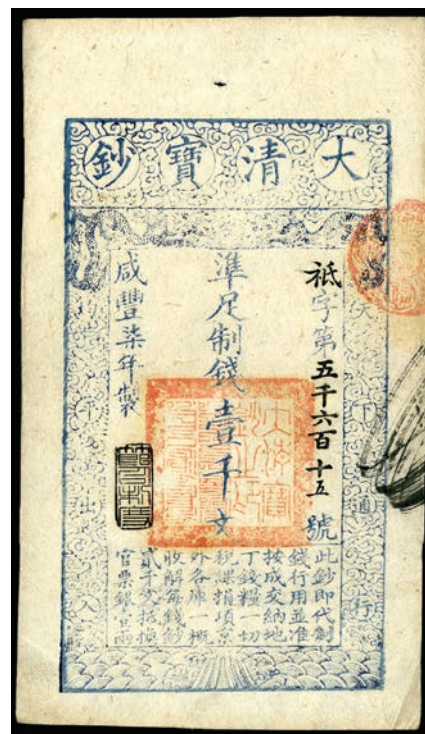 大清寶鈔
天下通行
祗字第五千六百十五號
準足制錢壹千文
咸豐柒年製
均平出入
此鈔即代制
錢行用並准
按成交納地
丁錢糧一切
稅課捐項京
外各庫一概
收解每錢鈔
貳千文抵換
官票銀壹兩